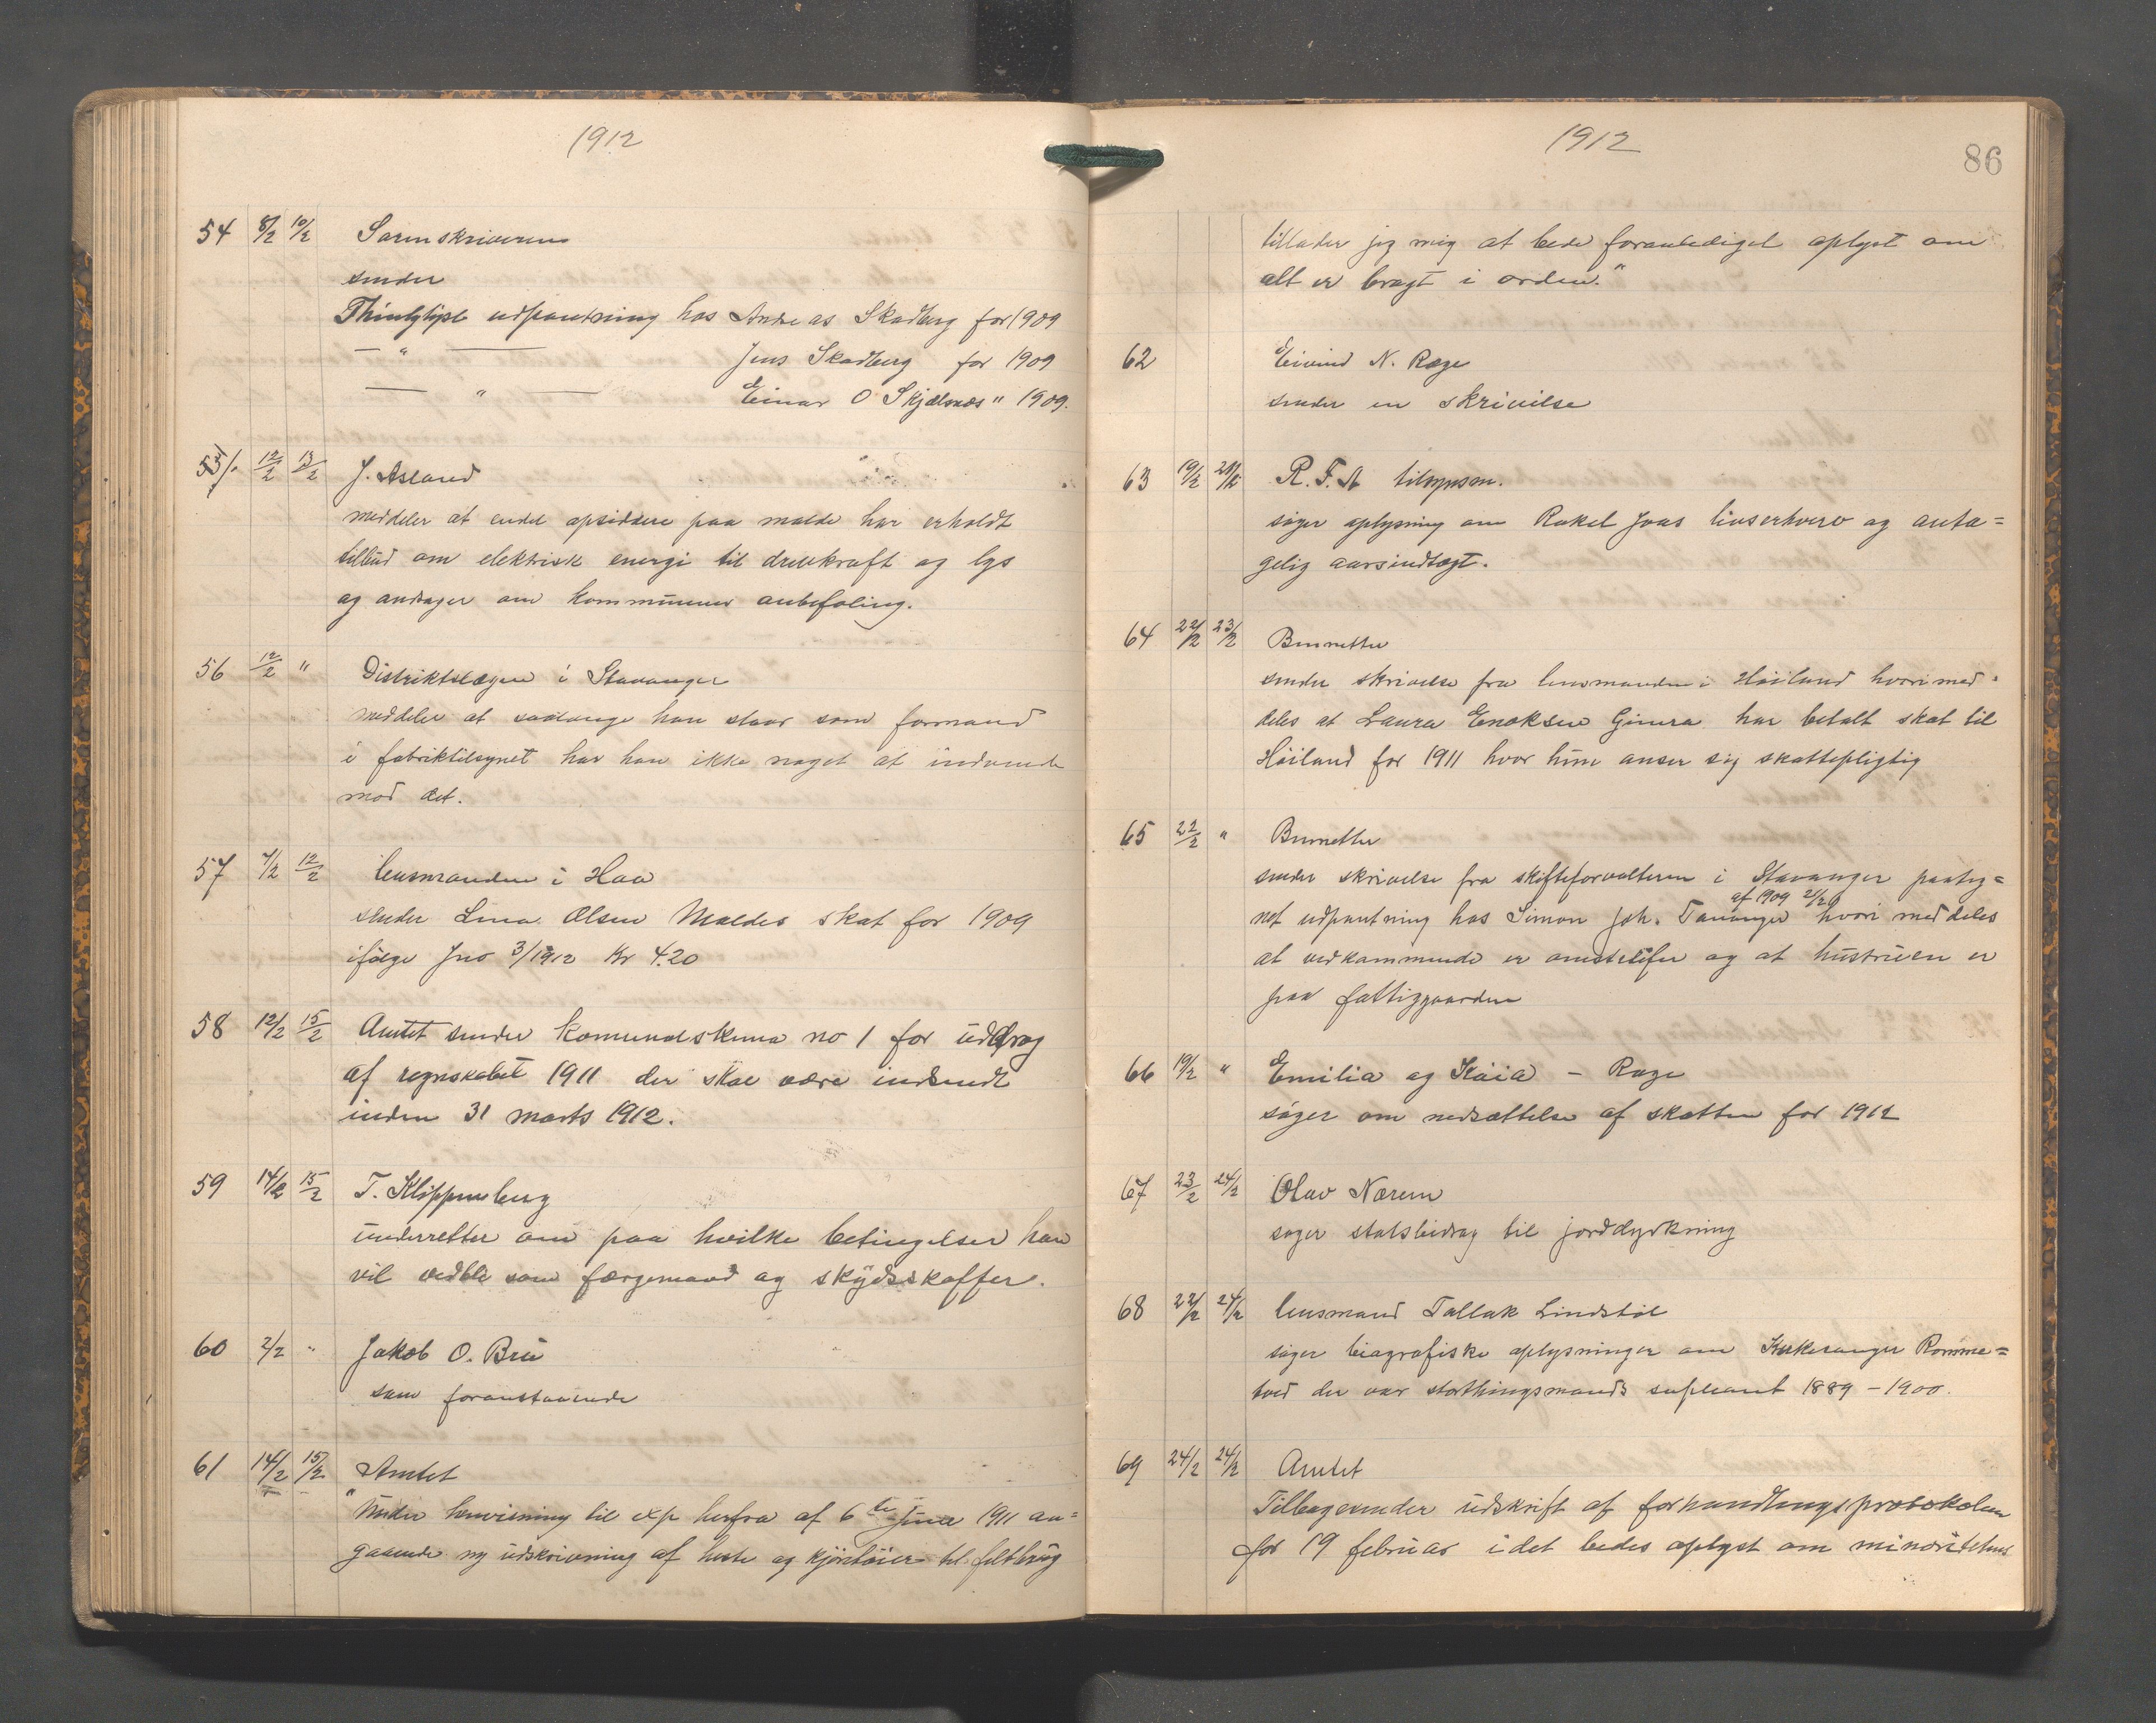 1912
54 8/2 10/2 Sorenskriveren
sender
Thinglyst udpantning hos Andreas Skadberg for 1909
— " — Jens Skadberg for 1909
— " — Einar O Skjælsnæs " 1909.
55/. 12/2 13/2 J. Asland
meddeler at endel opsiddere paa malde har erholdt
tilbud om elektrisk energi til drivkraft og lys
og andrager om kommunens anbefaling.
56 12/2 " Distriktslægen i Stavanger
meddeler at saalænge han staar som formand
i fabriktilsynet har han ikke noget at indvende
mod det.
57 7/2 12/2 Lensmanden i Haa
sender Lina Olsen Maldes skat for 1909
ifølge Jno 3/1912 Kr 4.20
58 12/2 15/2 Amtet sender komunalskema no 1 for uddrag
af regnskabet 1911 der skal være indsendt
inden 31 marts 1912.
59 14/2 15/2 T. Klippenberg
underretter om paa hvilke betingelser han
vil vedbli som færgemand og skydsskaffer.
60 2/2 " Jakob O. Bru
som foranstaaende
61 14/2 15/2 Amtet
"Under henvisning til exp herfra af 6te June 1911 an=
gaaende ny udskrivning af heste og kjøretøier til feltbrug
1912
86
tillader jeg mig at bede foranlediget oplyst om
alt er bragt i orden."
62 Eivind N. Ræge
sender en skrivelse
63 19/2 21/2 R. F. A tilsynsm.
søger oplysning om Rakel Joas livserhverv og anta=
gelig aarsindtægt.
64 22/2 23/2 Brunetter
sender skrivelse fra lensmanden i Høiland hvori med=
deles at Laura Enoksen Gimra har betalt skat til
Høiland for 1911 hvor hun anser sig skattepligtig
65 22/2 " Brunetter
sender skrivelse fra skifteforvalteren i Stavanger paateg=
af 1909 21/2
net udpantning hos Simon Joh. Tananger hvori meddeles
at vedkommende er og at hustruen er
paa fattiggaarden
66 19/2 " Emilia og Kaia – Ræge
søger om nedsættelse af skatten for 1912
67 23/2 24/2 Olav Nærem
søger statsbidrag til jorddyrkning
68 22/2 24/2 Lensmand Tallak Lindstøl
søger biografiske oplysninger om Kirkesanger Romme=
tved der var storthingsmands supleant 1889 – 1900.
69 24/2 24/2 Amtet
Tilbagesender udskrift af forhandlingsprotokolen
for 19 februar idet bedes oplyst om minoritetens